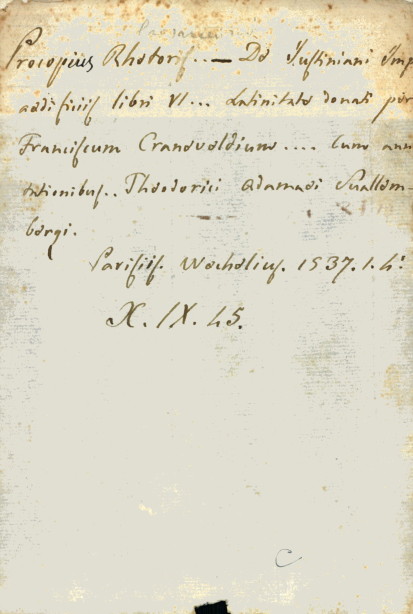 Procopius Rhetoris.. — De Justiniani Imp
aedificiis libri VI... Latinitate donati per
Franciscum Craneveldium.... Cum ann
tationibus.. Theodorici Adamaei Suallem-
bergi.
Parisiis. Wechelius. 1537. 1. 4º.
X. IX. 45.
C